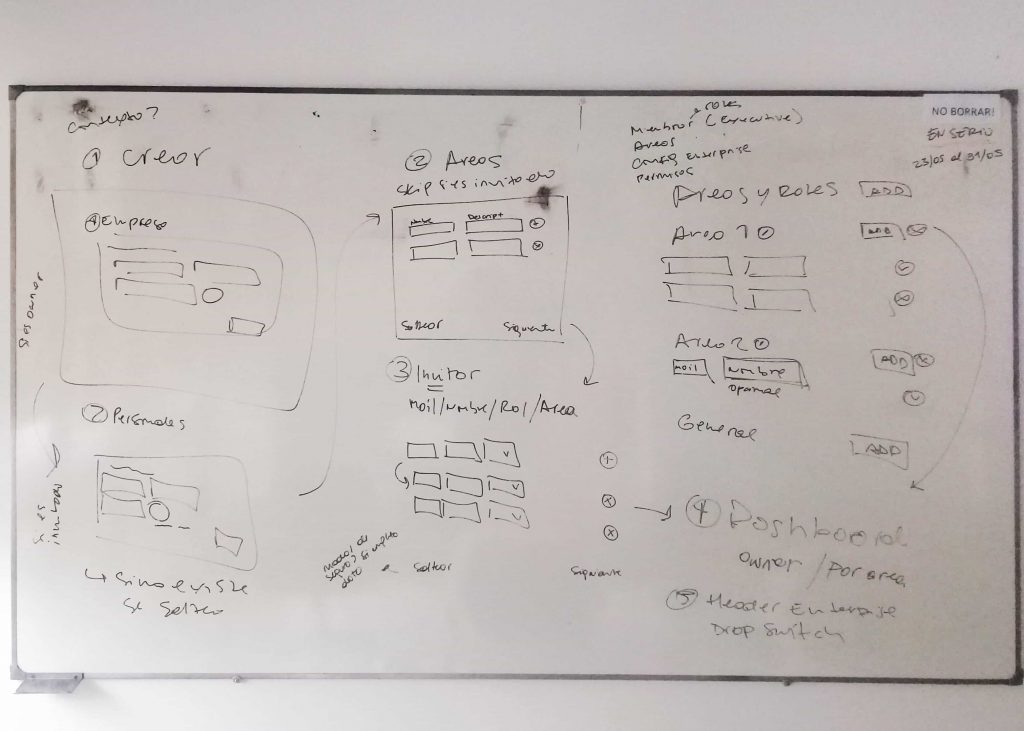 ① Crear
① Empresa
Si es owner
② Personales
Si es invitado
↳ Si no existe
se saltea
② Areas
Skip si es invitado
Nombre Descript
Saltear Siguiente
③ Invitar
Mail/Nombre/Rol/Area
Saltear Siguiente
roles
Miembros (executive)
Areas
Config Enterprise
Permisos
Areas y Roles ADD
Area 1 ADD
Area 2 ADD
Mail Nombre
opcional
General ADD
④ Dashboard
owner / Por area
⑤ Header Enterprise
Drop Switch
NO BORRAR!
EN SERIO
23/05 al 31/05